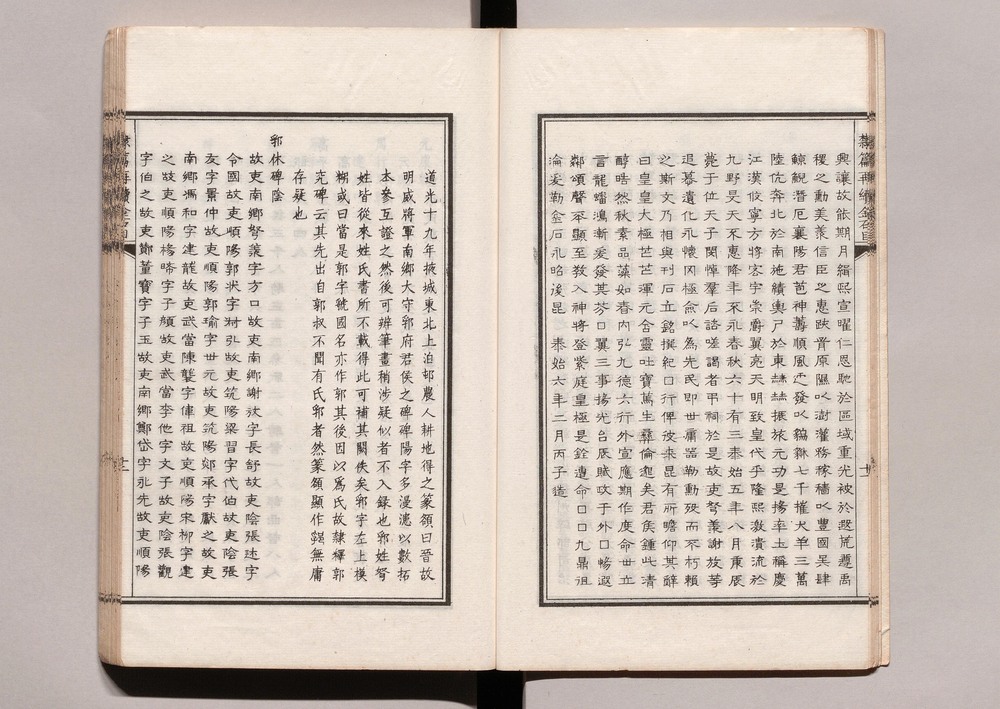 興讓故能期月緝熙宣曜仁恩馳於區域重光被於遐荒遵禹
稷之勳美羨信臣之惠跌膏原隰以澍灌務稼穡以豐國吴肆
鯨鯢潛厄襄陽君芭神蓍順風而發以貔貅七千摧犬羊三萬
陸伉奔北於南施績輿尸於東赫赫振旅元功是揚率土稱慶
江漢攸寧方將窓字崇爵翼亮天明致皇代乎隆熙激潰流於
九野旻天不惠降年不永春秋六十有三泰始五年八月庚辰
薨于位天子閔悼羣后諮嗟謁者弔祠於是故吏弩羨謝放等
追慕遺化永懷罔極僉以為先民即世庸器勒勳殁而不朽賴
之斯文乃相與刊石立銘撰紀口行俾後來昆有所瞻仰其辭
曰皇皇大極芒芒渾元合靈吐寶篤生彝倫邈矣君侯鍾此清
醇皓然秋素品藻如春內弘九德六行外宣應期作度命世立
言龍蟠鴻漸爰發其芬口翼三事揚光台底賦政于外口暢遐
鄰頌聲丕顯至教入神將登紫庭皇極是銓遺命口口九鼎徂
淪爰勒金石永昭後昆 泰始六年二月丙子造
道光十九年掖城東北上泊邨農人耕地得之篆領曰晉故
明威將軍南鄉大守郛府君侯之碑碑陽字多漫漶以數拓
本參互證之然後可辨筆畫稍涉疑似者不入録也郛姓弩
姓皆從來姓氏書所不載得此可補其闕佚矣郛字左上模
糊或曰當是郭字虢國名亦作郭其後因以為氏故隸釋郭
究碑云其先出自郭叔不聞有氏郛者然篆領顯作郛無庸
存疑也
郛休碑陰
故吏南鄉弩羨字方口故吏南鄉謝放字長舒故吏陰張述字
令國故吏順陽郭洪字洲弘故吏筑陽梁習字代伯故吏陰張
友字景仲故吏順陽郭瑜字世元故吏筑陽郯承字獻之故吏
南鄉馮和字建龍故吏武當陳龔字偉祖故吏順陽宋柳字建
之故吏順陽楊啼字子頠故吏武當李他字文子故吏陰張觀
字伯之故吏鄭董寶字子玉故吏南鄉鄭岱字永先故吏順陽